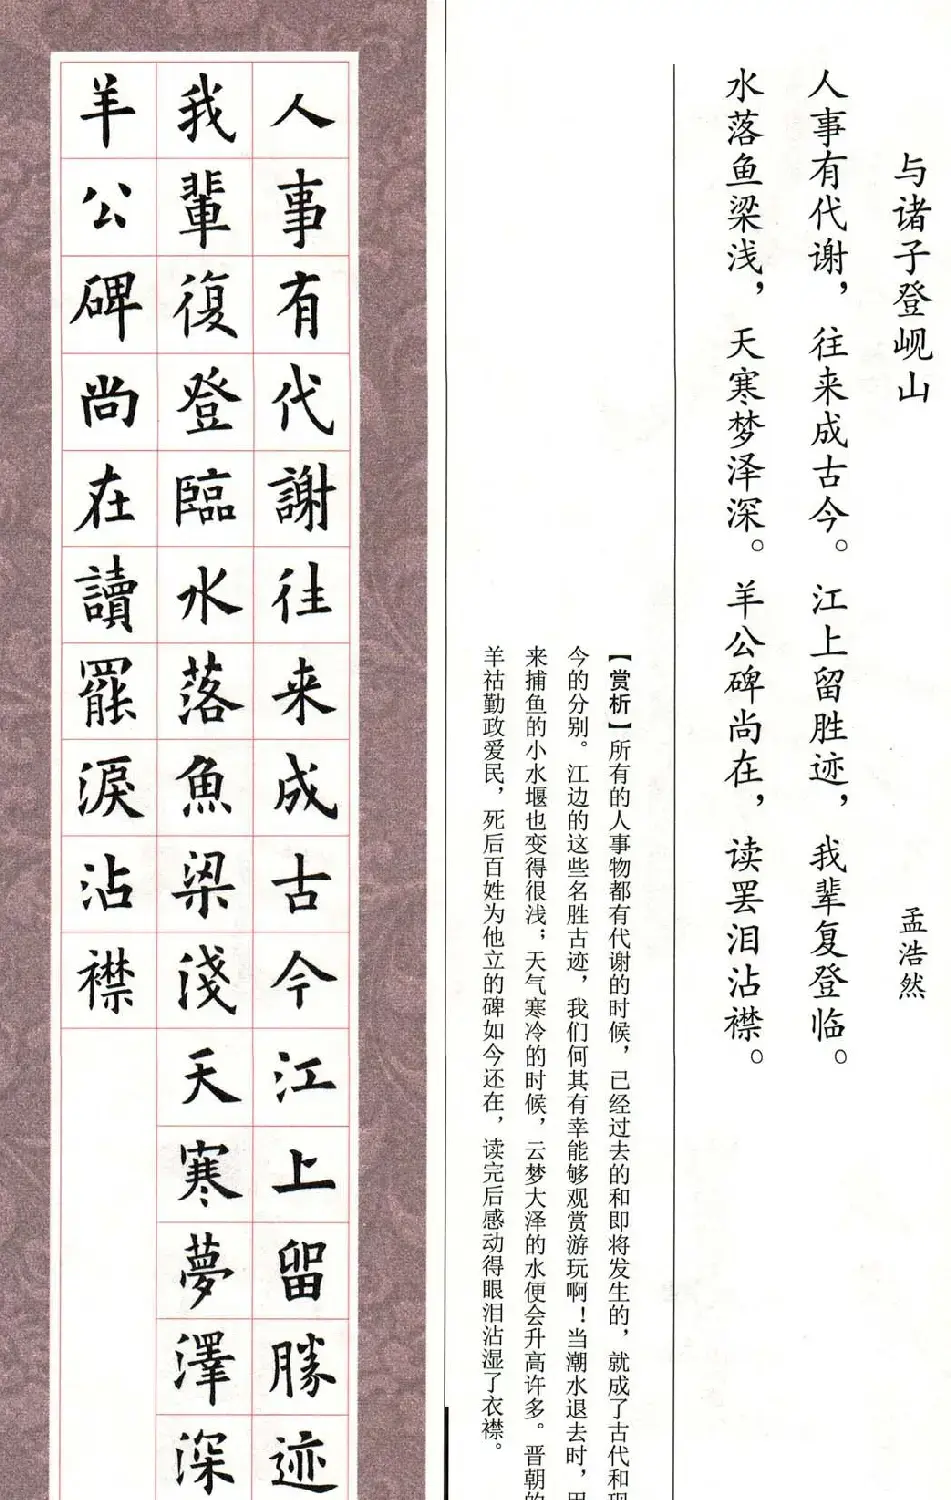 与诸子登岘山
孟浩然
人事有代谢，往来成古今。江上留胜迹，我辈复登临。
水落鱼梁浅，天寒梦泽深。羊公碑尚在，读罢泪沾襟。
【赏析】所有的人事物都有代谢的时候，已经过去的和即将发生的，就成了古代和现
今的分别。江边的这些名胜古迹，我们何其有幸能够观赏游玩啊！当潮水退去时，用
来捕鱼的小水堰也变得很浅；天气寒冷的时候，云梦大泽的水便会升高许多。晋朝的
羊祜勤政爱民，死后百姓为他立的碑如今还在，读完后感动得眼泪沾湿了衣襟。
人事有代謝往来成古今江上留勝迹
我輩復登臨水落魚梁淺天寒夢澤深
羊公碑尚在讀罷淚沾襟